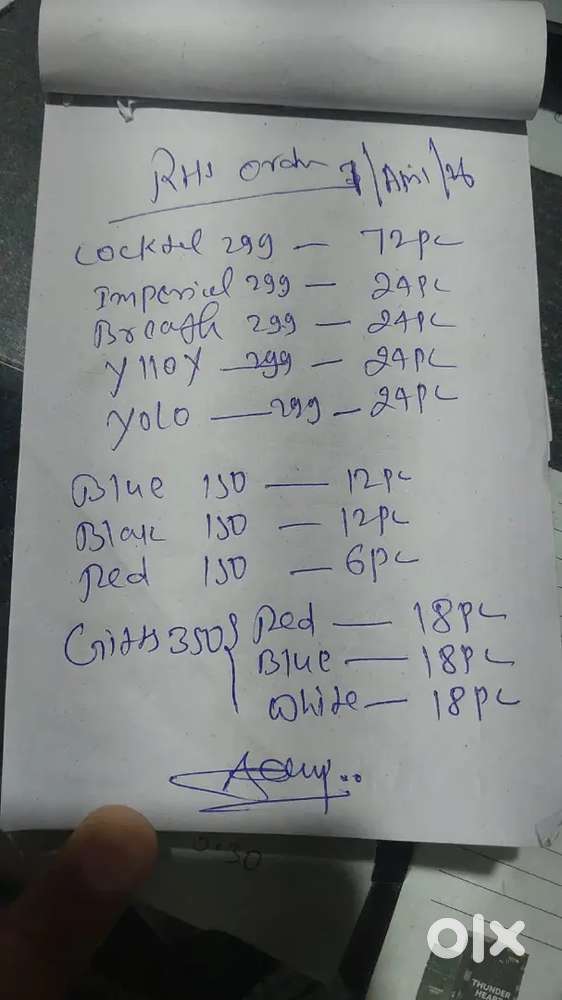 RHS order 7/April/26
Cocktel 299 — 72pc
Imperial 299 — 24pc
Breath 299 — 24pc
299 — 24pc
YOLO — 299 — 24pc
Blue 150 — 12pc
Blak 150 — 12pc
Red 150 — 6pc
350 { Red — 18pc
Blue — 18pc
White — 18pc
0:30
olx
THUNDER